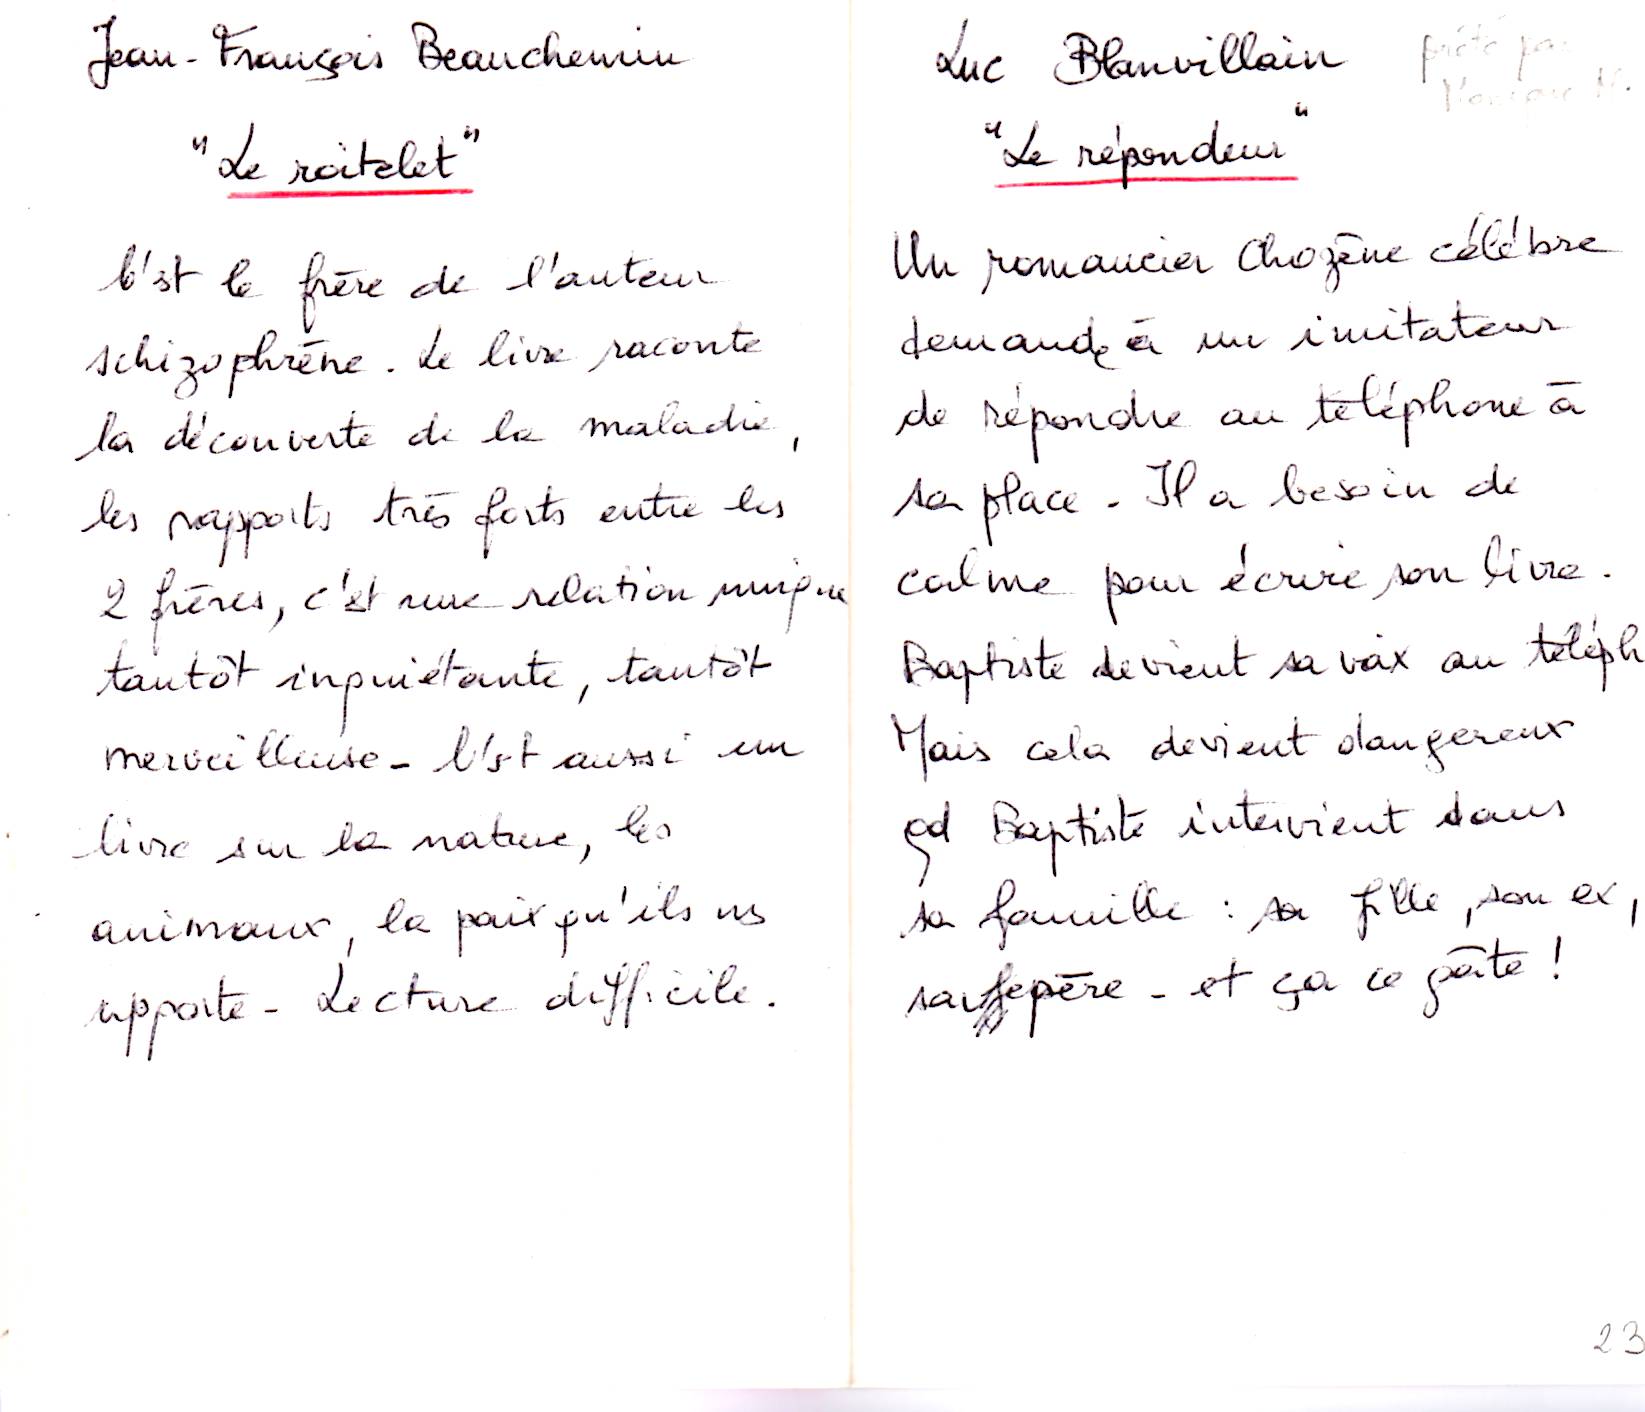 Jean-François Beauchemin
"Le roitelet"
C'est le frère de l'auteur
schizophrène. Le livre raconte
la découverte de la maladie,
les rapports très forts entre les
2 frères, c'est une relation unique
tantôt inquiétante, tantôt
merveilleuse - C'est aussi un
livre sur la nature, les
animaux, la paix qu'ils ns
apporte - Lecture difficile.
Luc Blanvillain
prêté par
"Le répondeur"
Un romancier Chozène célébre
demande à un imitateur
de répondre au téléphone à
sa place - Il a besoin de
calme pour écrire son livre.
Baptiste devient sa voix au téléph
Mais cela devient dangereux
qd Baptiste intervient dans
sa famille : sa fille, son ex,
père - et ça ce gâte !
23